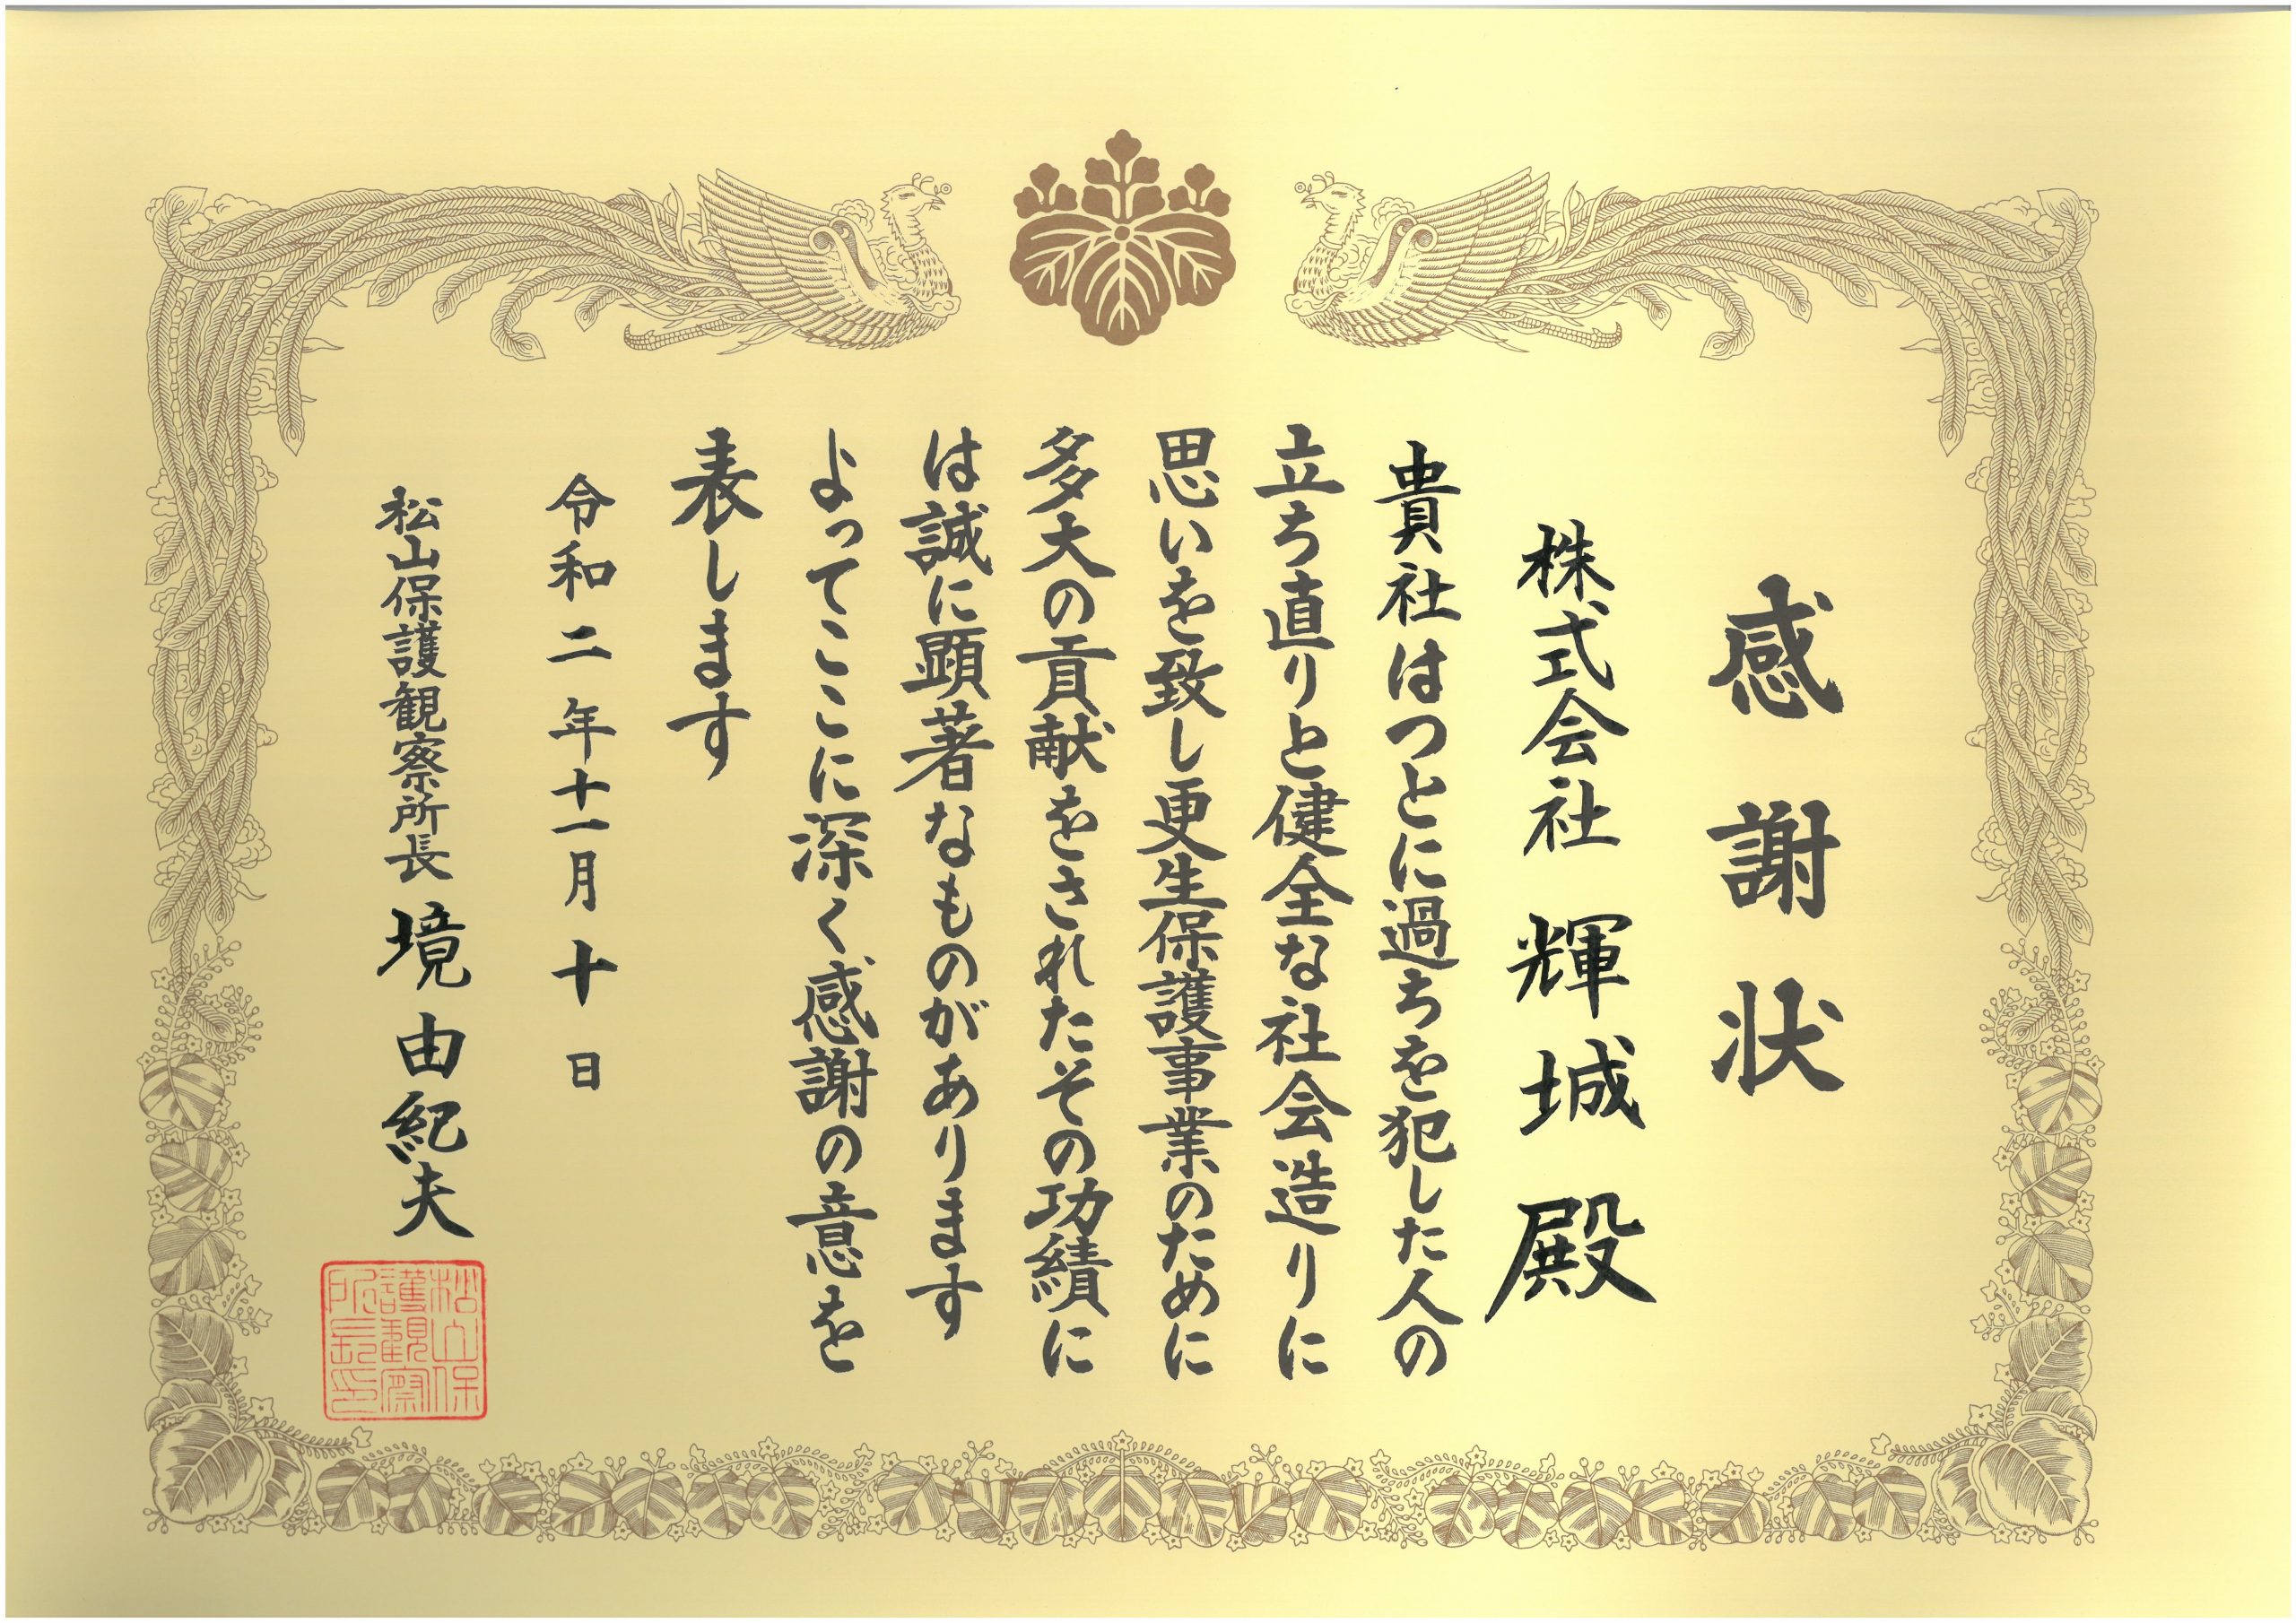 感謝状
株式会社 輝城 殿
貴社はつとに過ちを犯した人の
立ち直りと健全な社会造りに
思いを致し更生保護事業のために
多大の貢献をされたその功績に
は誠に顕著なものがあります
よってここに深く感謝の意を
表します
令和二年十一月十日
松山保護観察所長 境由紀夫
松山保
護観察
所長印